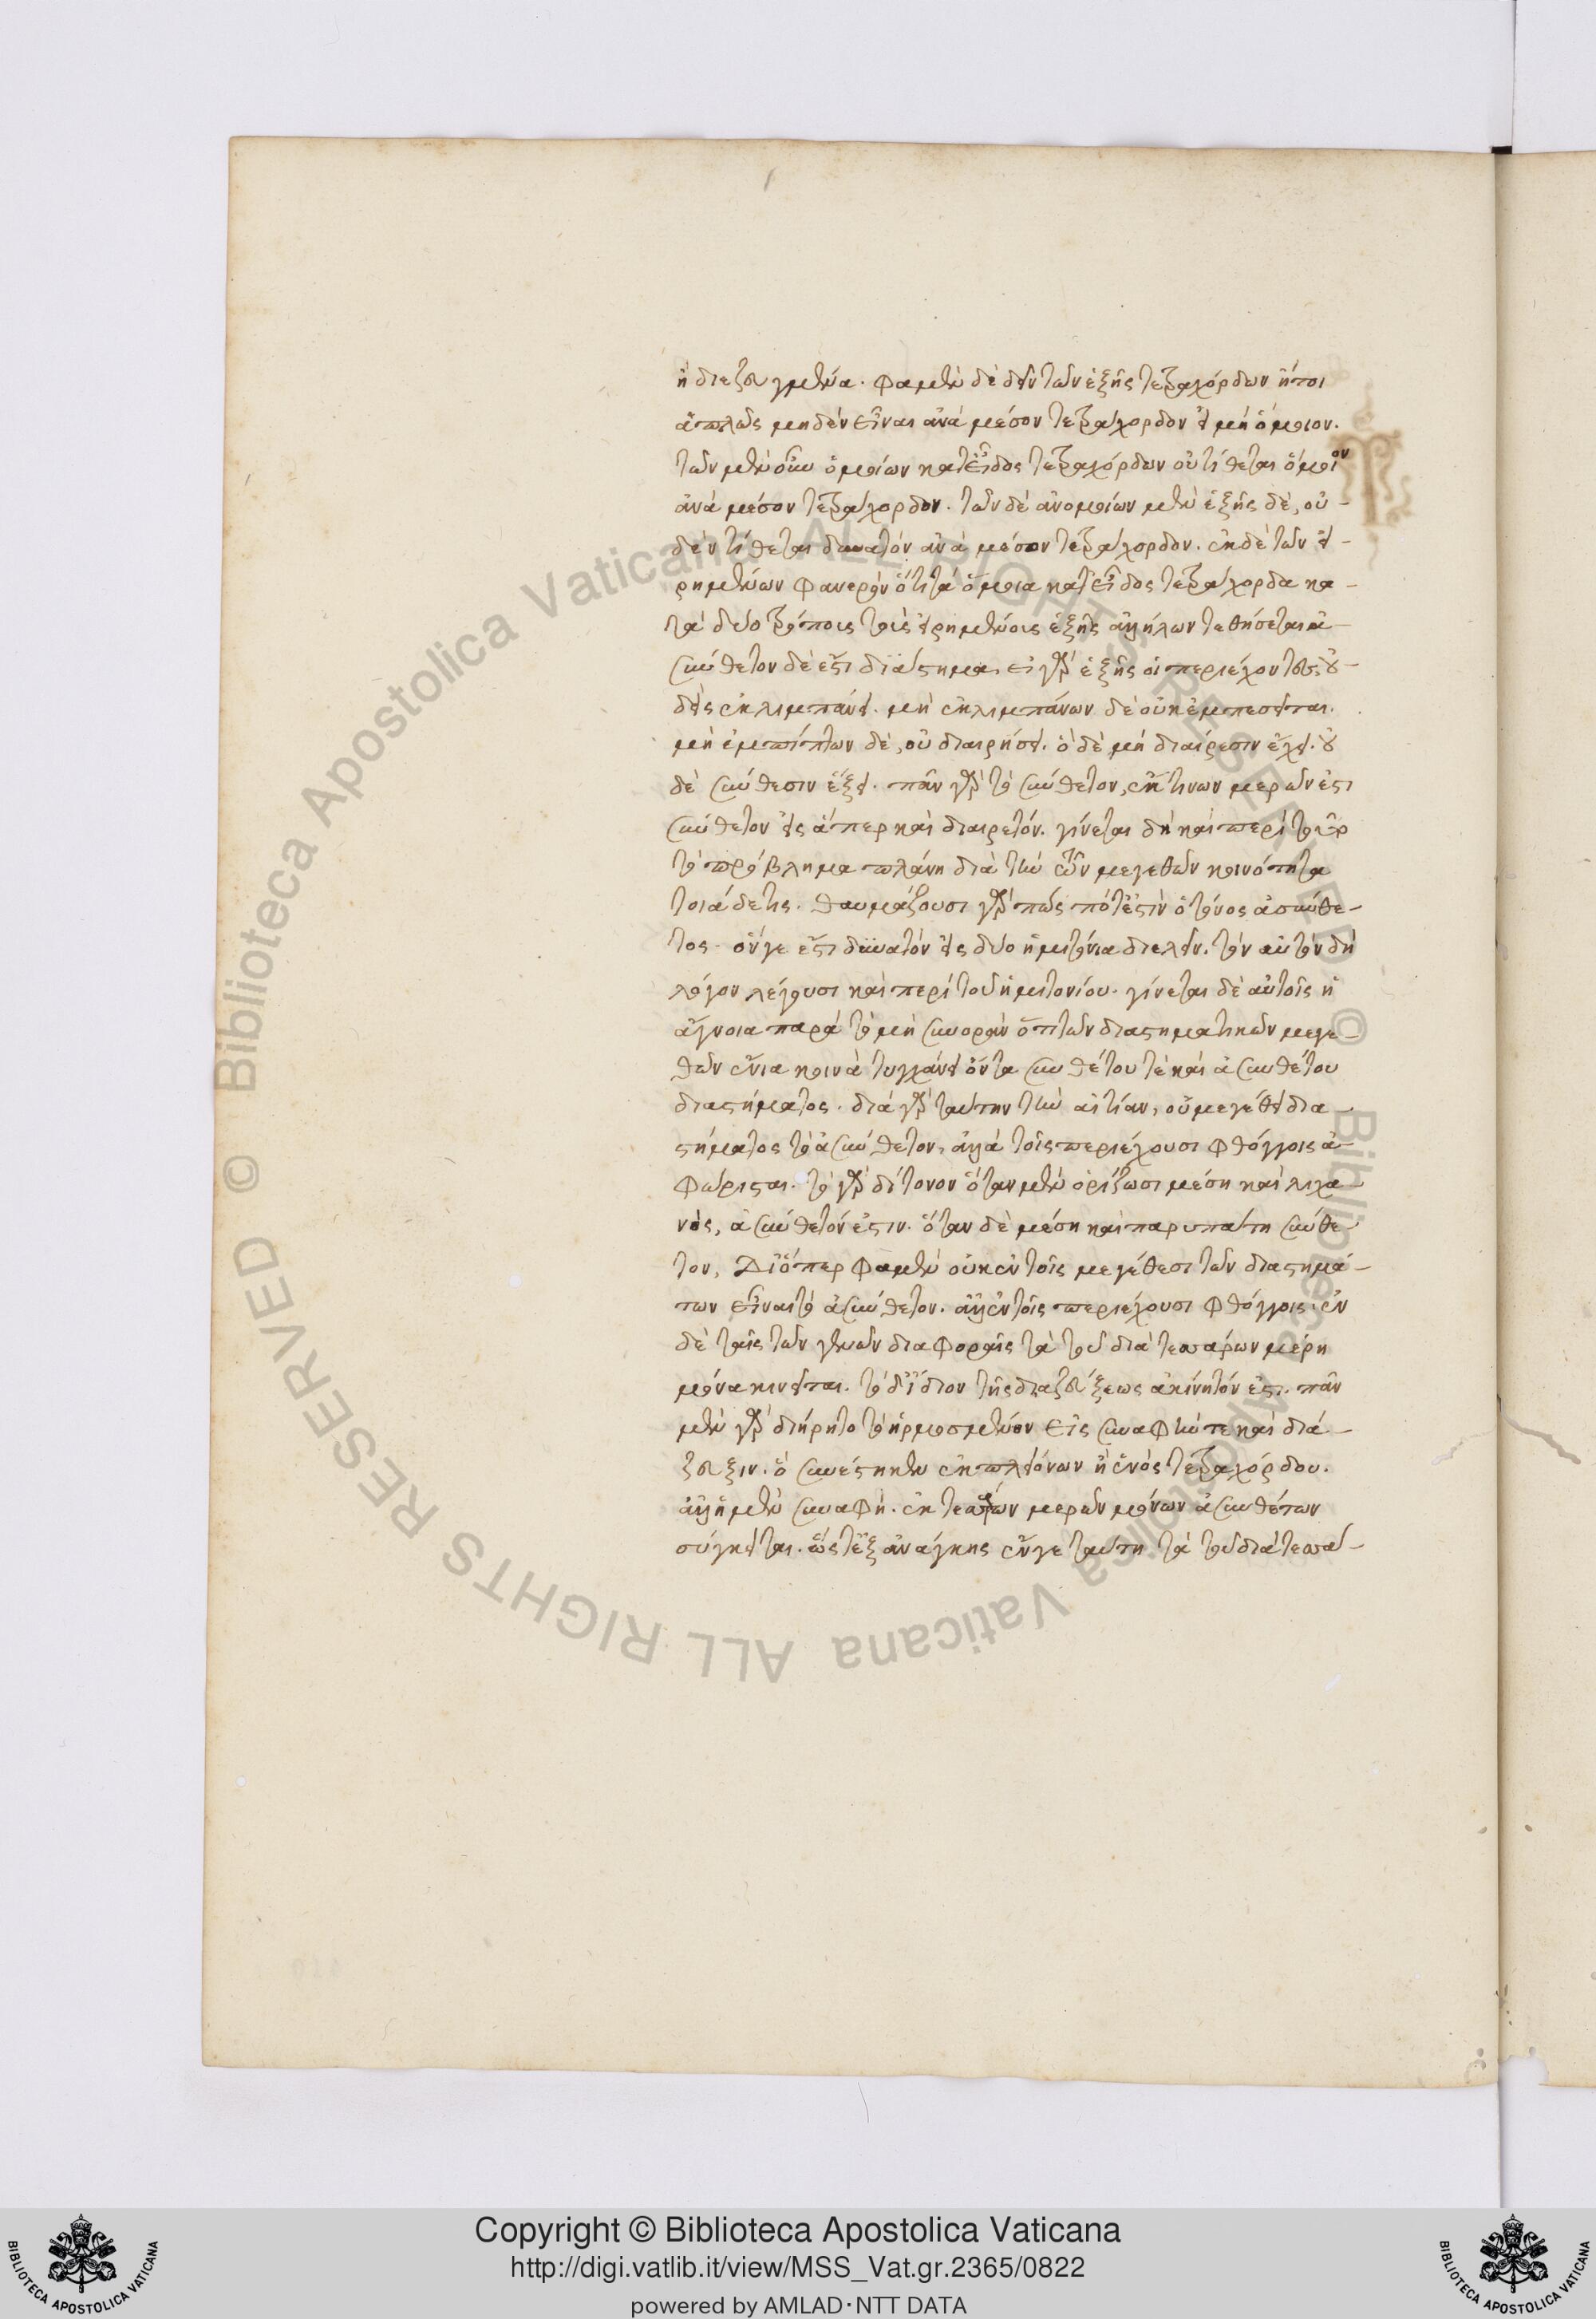 ἢ διεζευγμένα. φαμὲν δὲ δεῖν τῶν ἑξῆς τετραχόρδων ἤτοι
ἁπλῶς μηδὲν εἶναι ἀνὰ μέσον τετράχορδον ἢ μὴ ὅμοιον.
τῶν μὲν οὖν ὁμοίων κατ' εἶδος τετραχόρδων οὐ τίθεται ὅμοιον
ἀνὰ μέσον τετράχορδον. τῶν δὲ ἀνομοίων μὲν ἑξῆς δὲ, οὐ-
δὲν τίθεται δυνατὸν ἀνὰ μέσον τετράχορδον. ἐκ δὲ τῶν εἰ-
ρημένων φανερὸν ὅτι τὰ ὅμοια κατ' εἶδος τετράχορδα κα-
τὰ δύο τρόποις τοῖς εἰρημένοις ἑξῆς ἀλλήλων τεθήσεται ἀ-
σύνθετον δὲ ἐστι διάστημα, εἰ γὰρ ἑξῆς οἱ περιέχοντες, οὐ-
δεὶς ἐκλιμπάνει. μὴ ἐκλιμπάνων δὲ οὐκ ἐμπεσεῖται.
μὴ ἐμπίπτων δὲ, οὐ διαιρήσει. ὃ δὲ μὴ διαίρεσιν ἔχει. οὐ
δὲ σύνθεσιν ἕξει. πᾶν γὰρ τὸ σύνθετον, ἔκ τινων μερῶν ἐστι
σύνθετον εἰς ἅπερ καὶ διαιρετόν. γίνεται δὴ καὶ περὶ τοῦτο
τὸ πρόβλημα πλάνη διὰ τὴν τῶν μεγεθῶν κοινότητα
τοιάδε τις. θαυμάζουσι γὰρ πῶς πότ' ἐστὶν ὁ τόνος ἀσύνθε-
τος. ὅν γε ἐστι δυνατὸν εἰς δύο ἡμιτόνια διελεῖν. τὸν αὐτὸν δὴ
λόγον λέγουσι καὶ περὶ τοῦ ἡμιτονίου. γίνεται δὲ αὐτοῖς ἡ
ἄγνοια παρὰ τὸ μὴ συνορᾶν ὅτι τῶν διαστηματικῶν μεγε-
θῶν ἔνια κοινὰ τυγχάνει ὄντα συνθέτου τὲ καὶ ἀσυνθέτου
διαστήματος. διὰ γὰρ ταύτην τὴν αἰτίαν, οὐ μεγέθει δια-
στήματος τὸ ἀσύνθετον, ἀλλὰ τοῖς περιέχουσι φθόγγοις ἀ-
φώρισται. τὸ γὰρ δίτονον ὅταν μὲν ὁρίζωσι μέση καὶ λιχα-
νὸς, ἀσύνθετόν ἐστιν. ὅταν δὲ μέση καὶ παρυπάτη σύνθε
τον, Διόπερ φαμὲν οὐκ ἐν τοῖς μεγέθεσι τῶν διαστημά-
των εἶναι τὸ ἀσύνθετον. ἀλλ' ἐν τοῖς περιέχουσι φθόγγοις. ἐν
δὲ ταῖς τῶν γενῶν διαφοραῖς τὰ τοῦ διὰ τεσσάρων μέρη
μόνα κινεῖται. τὸ δ' ἴδιον τῆς διαζεύξεως ἀκίνητόν ἐστι. πᾶν
μὲν γὰρ διῄρητο τὸ ἡρμοσμένον εἰς συναφήν τε καὶ διά-
ζευξιν. ὃ συνέστηκεν ἐκ πλειόνων ἢ ἑνὸς τετραχόρδου.
ἀλλ' ἡ μὲν συναφὴ. ἐκ τεσσάρων μερῶν μόνων ἀσυνθέτων
σύγκειται. ὥστ' ἐξ ἀνάγκης ἔν γε ταύτη τὰ τοῦ διὰ τεσσά-
Copyright © Biblioteca Apostolica Vaticana
http://digi.vatlib.it/view/MSS_Vat.gr.2365/0822
powered by AMLAD·NTT DATA